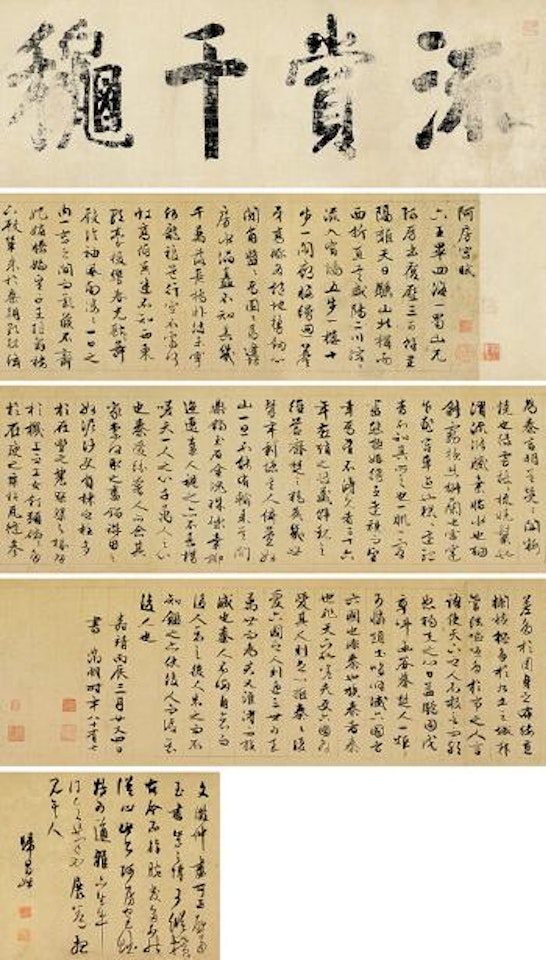 流賞千龝
阿房宮賦
六王畢四海一蜀山兀
阿房出覆壓三百餘里
隔離天日驪山北構而
西折直走咸陽二川溶溶
流入宮牆五步一樓十
步一閣廊腰縵回簷
牙高啄各抱地勢鉤心
鬥角盤盤焉囷囷焉蜂
房水渦矗不知其幾
千萬落長橋臥波未雲
何龍複道行空不霽何
虹高低冥迷不知西東
歌臺暖響春光融融舞
殿冷袖風雨淒淒一日之
內一宮之間而氣候不齊
妃嬪媵嬙王子皇孫辭樓
下殿輦來於秦朝歌夜絃
為秦宮明星熒熒開粧
鏡也綠雲擾擾梳曉鬟也
渭流漲膩棄脂水也煙
斜霧橫焚椒蘭也雷霆
乍驚宮車過也轆轆遠聽
杳不知其所之也一肌一容
盡態極妍縵立遠視而望
幸焉有不得見者三十六
年燕趙之收藏韓魏之
經營齊楚之精英幾世
幾年剽掠其人倚疊如
山一旦不能有輸來其間
鼎鐺玉石金塊珠礫棄擲
邐迤秦人視之亦不甚惜
嗟乎一人之心千萬人之心
也秦愛紛奢人亦念其
家奈何取之盡錙銖用之
如泥沙使負棟之柱多
於南畝之農夫架梁之椽多
於機上之工女釘頭磷磷多
於在庾之粟粒瓦縫參
差多於周身之帛縷直
欄橫檻多於九土之城郭
管絃嘔啞多於市人之言
語使天下之人不敢言而敢
怒獨夫之心日益驕固戍
卒叫函谷舉楚人一炬
可憐焦土嗚呼滅六國者
六國也非秦也族秦者秦
也非天下也嗟夫使六國各
愛其人則足以拒秦秦復
愛六國之人則遞三世可至
萬世而為君誰得而族
滅也秦人不暇自哀而
後人哀之後人哀之而不
知鑑之亦使後人而復哀
後人也
嘉靖丙辰三月廿又四日
書 徵明時年八十有七
文徵仲
阿房宮賦
展卷
歸昌世